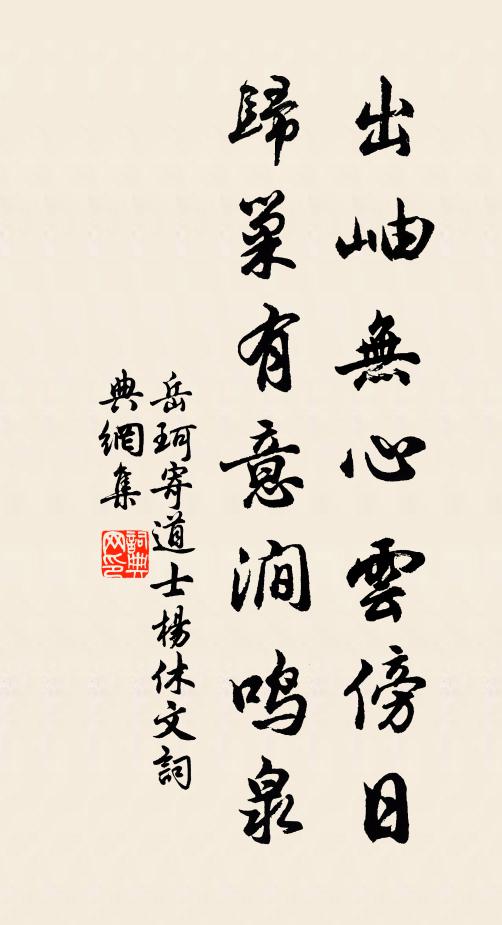 出岫無心雲傍日
歸巢有意澗鳴泉
岳珂寄道士楊休文詞
典網集
詞典
网印